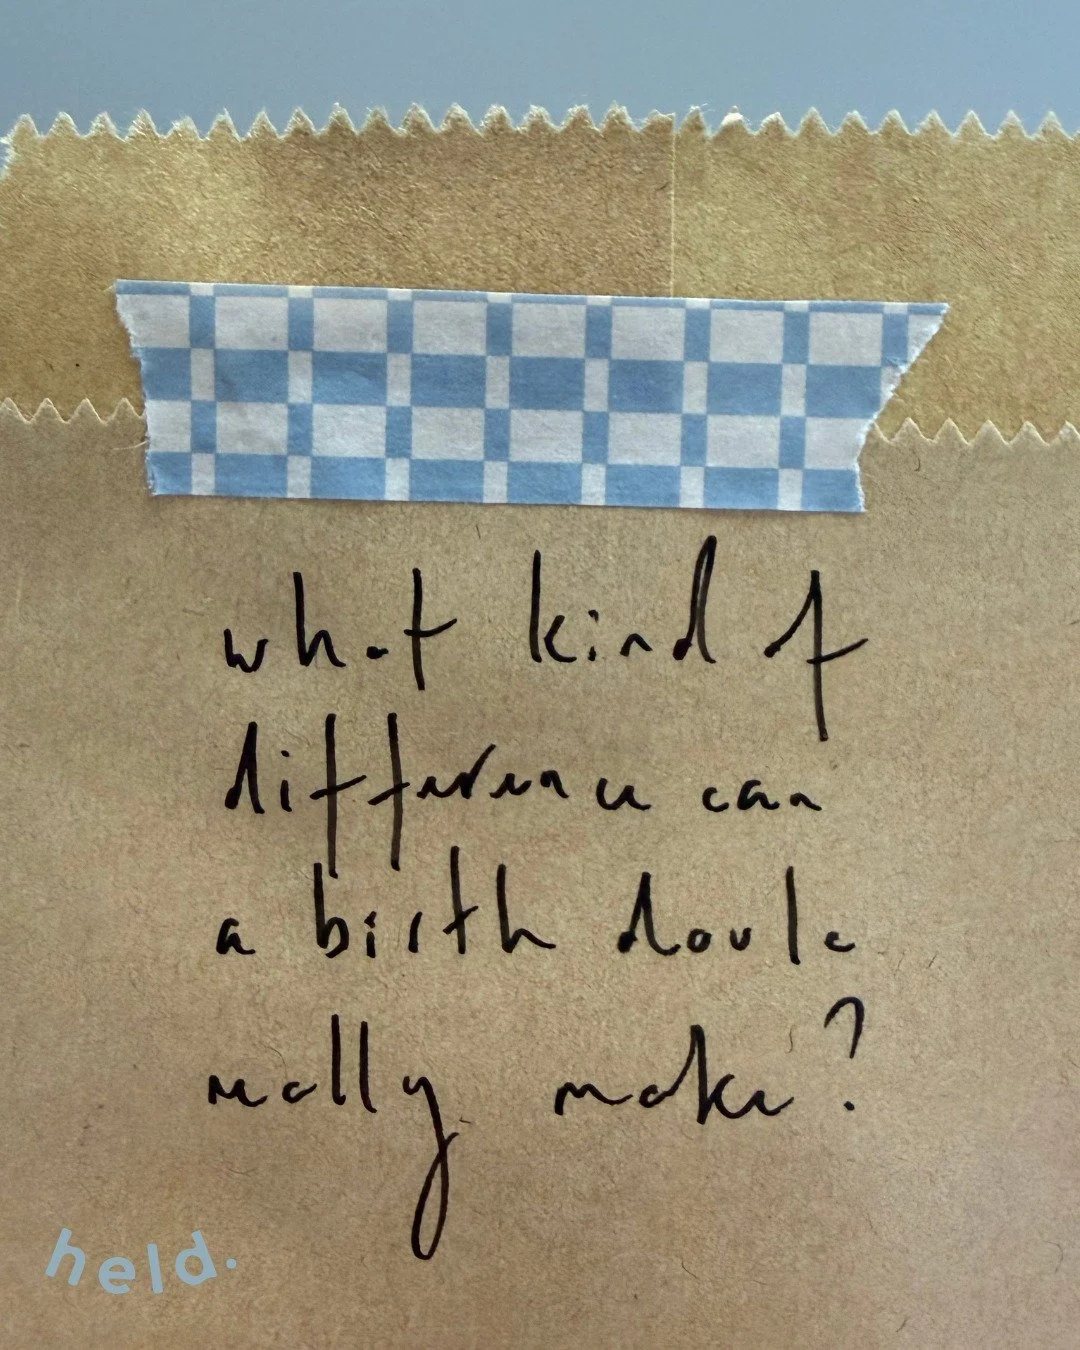 what kind of
difference can
a birth doula
really make?
held.